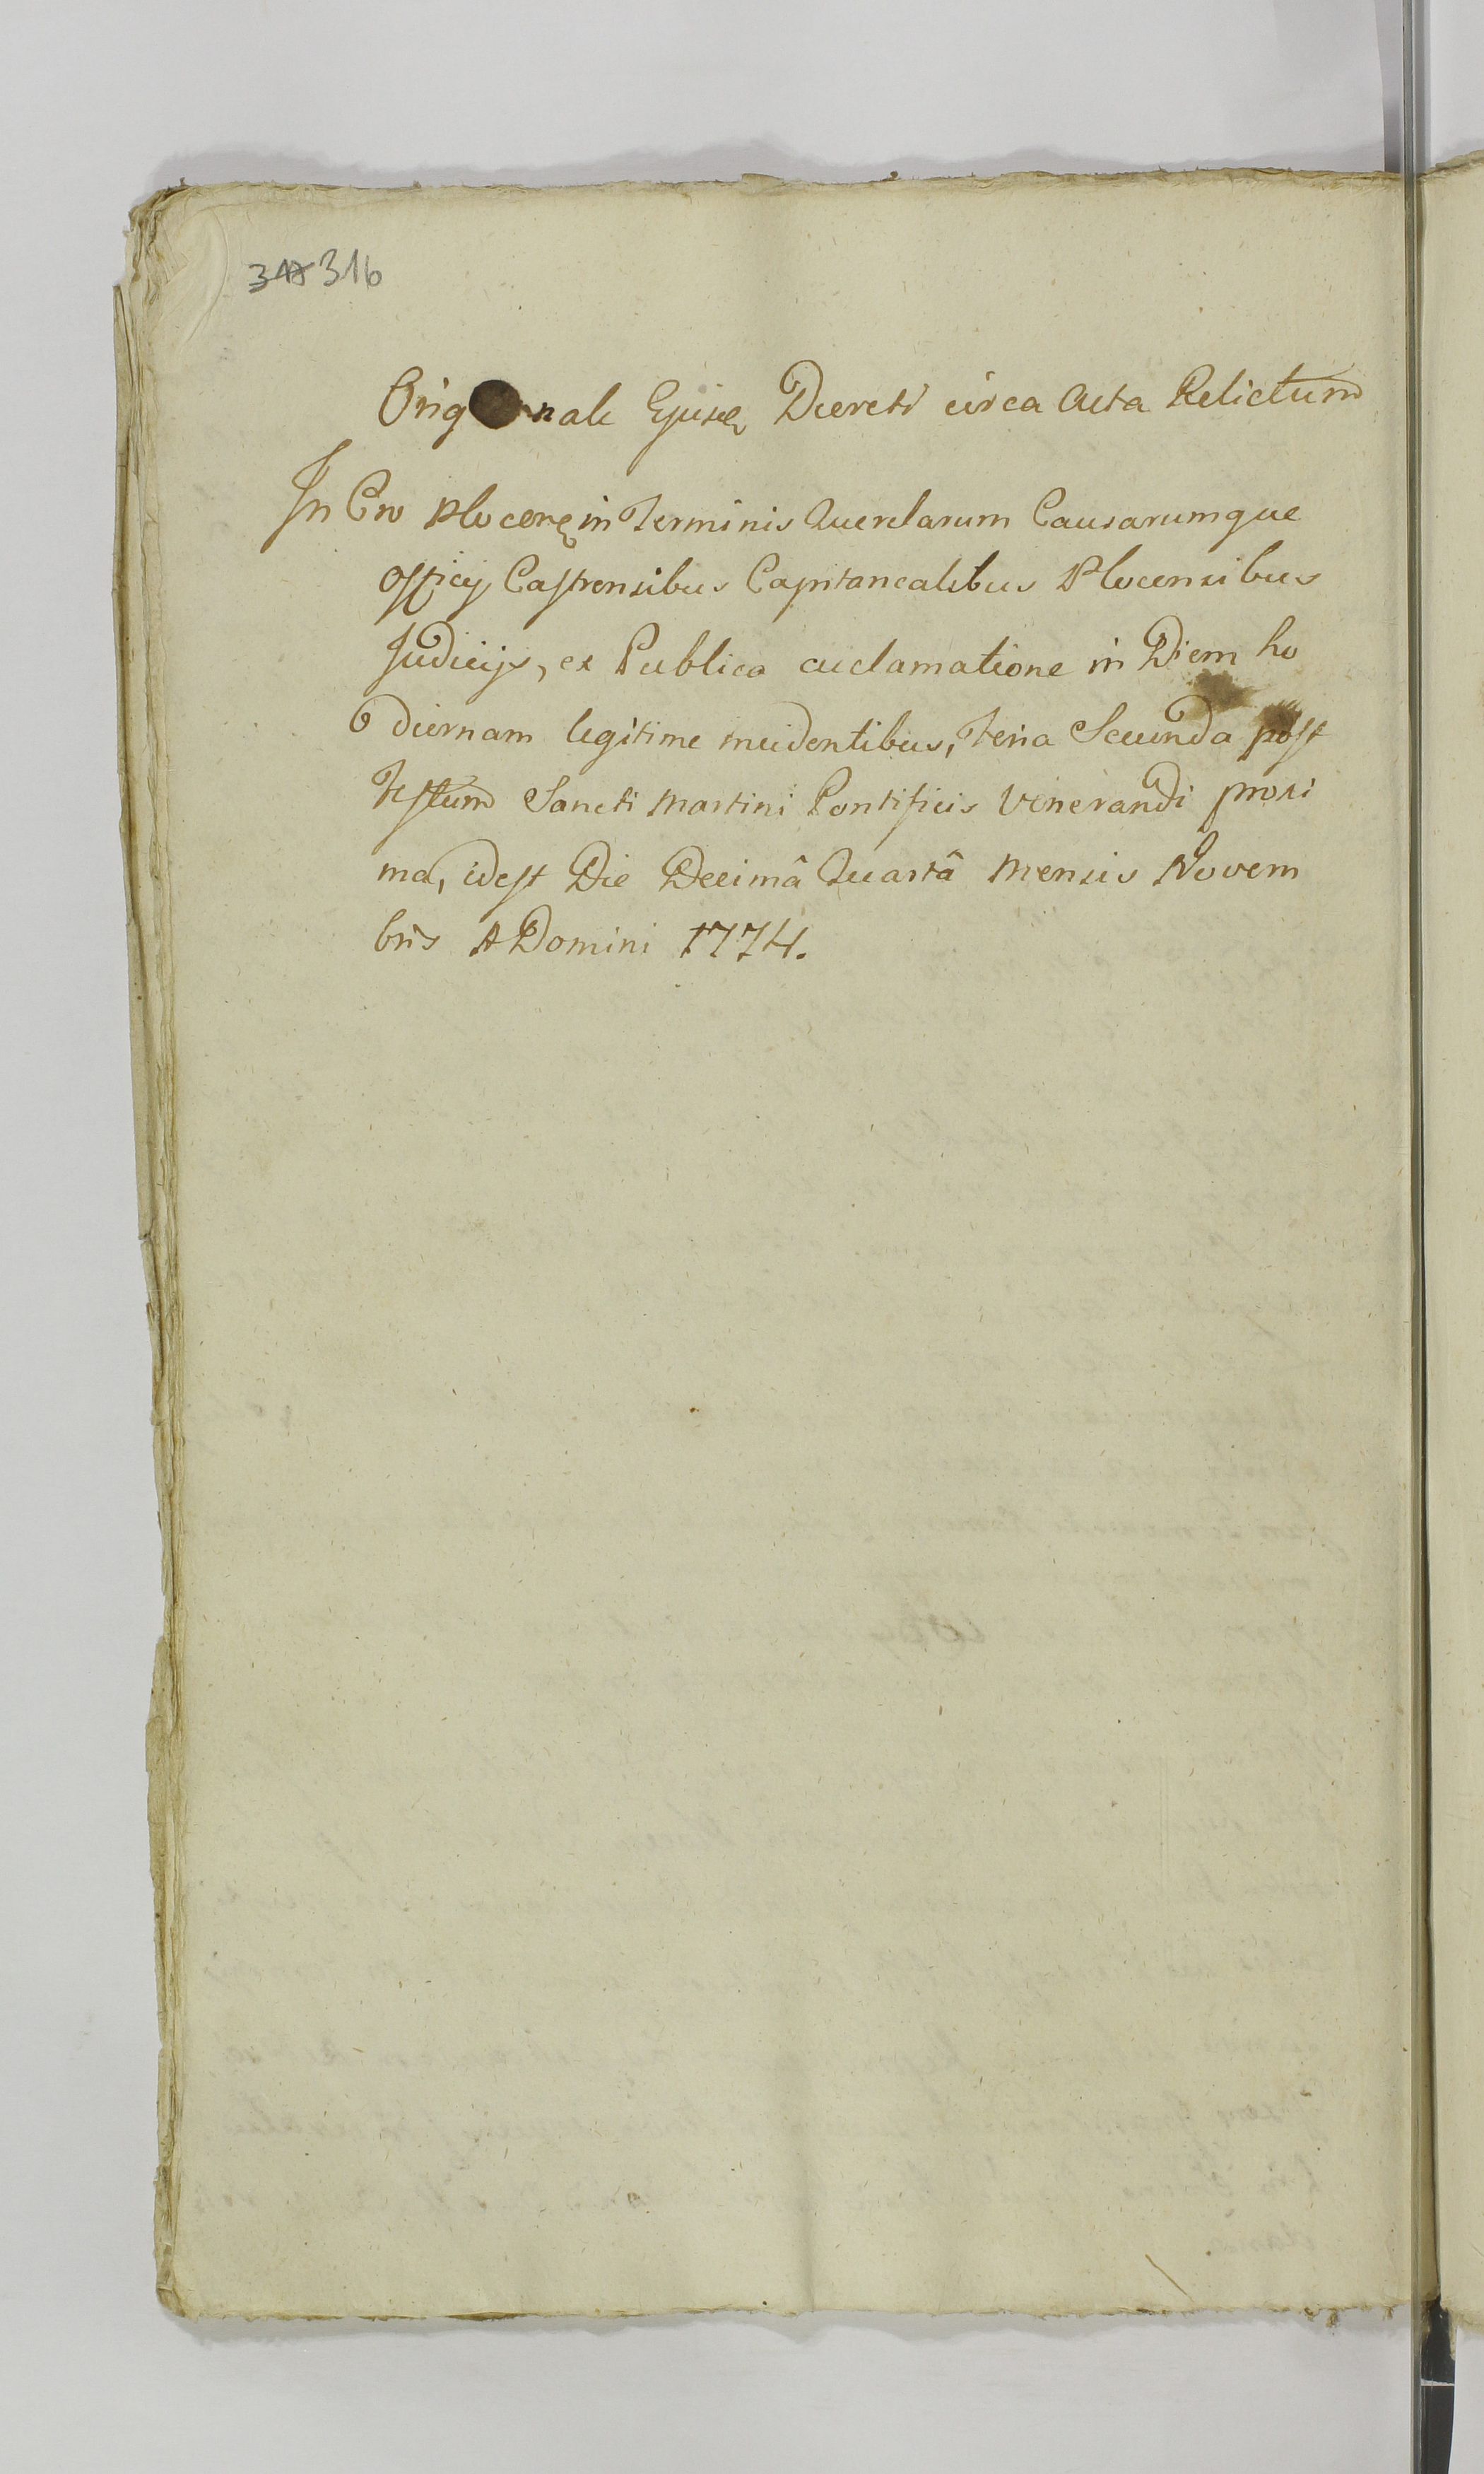 316
Orig nale Decreti circa Acta Relictum
In Cro Plocen in Terminis Querelarum Causarumque
Officij Castrensibus Capitanealibus Plocensibus
Judicijs, ex Publica acclamatione in Diem ho
diernam legitime incidentibus, Feria Secunda post
Festum Sancti Martini Pontificis Venerandi proxi
ma, idest Die Decimâ Quartâ Mensis Novem
bris A Domini 1774.